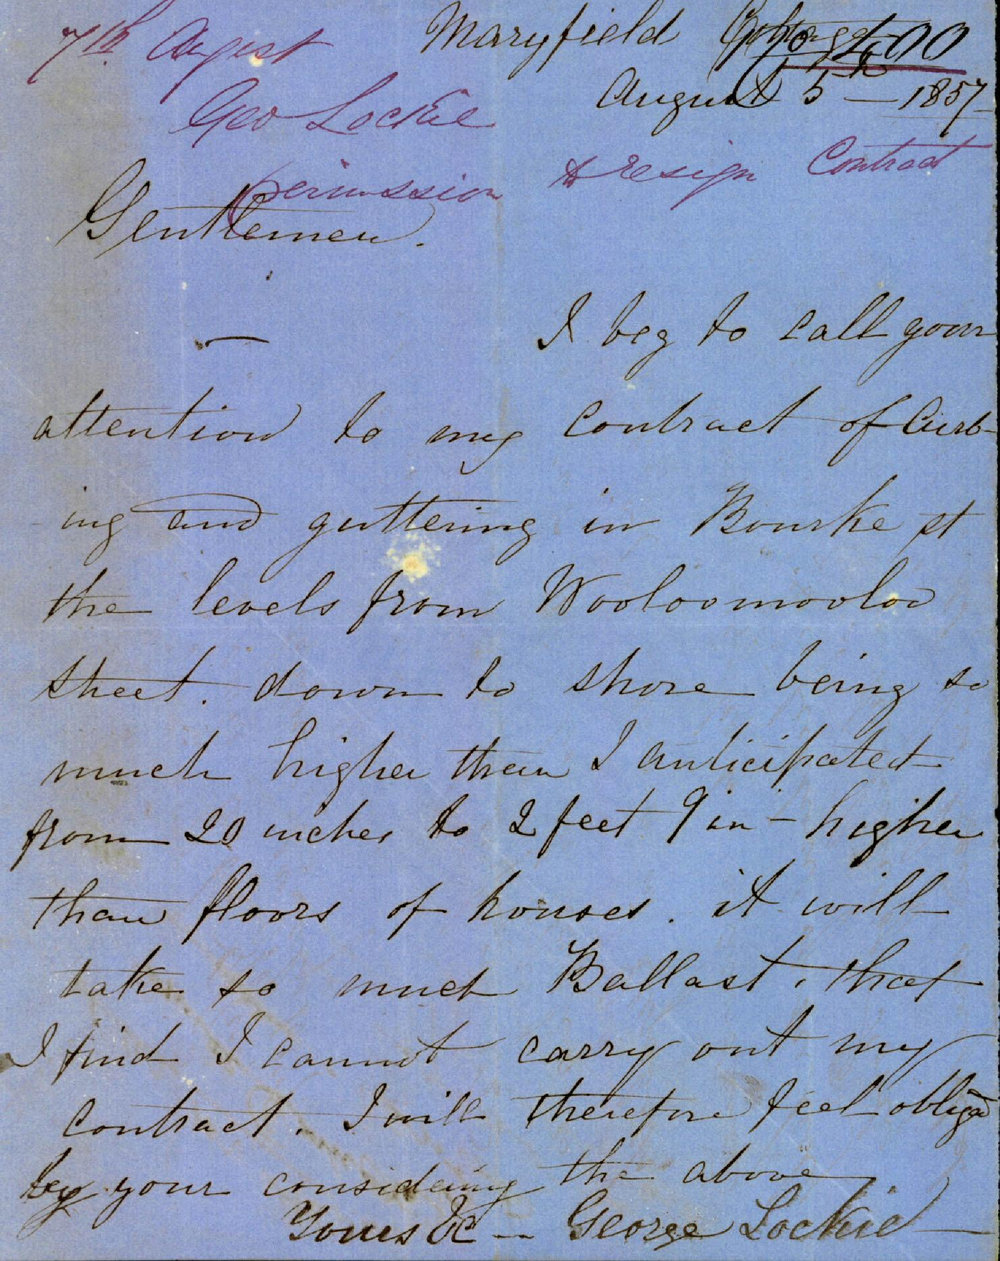 7th August
Maryfield Cottage
400
August 5th — 1857
Geo Lockie
permission to resign Contract
Gentlemen.
I beg to call your
attention to my contract of Curb-
ing and guttering in Bourke st
the levels from Wooloomooloo
street. down to shore being so
much higher than I anticipated
from 20 inches to 2 feet 9 in - higher
than floors of houses. it will
take so much Ballast, that
I find I cannot carry out my
contract. I will therefore feel obliged
by your considering the above
Yours &c -- George Lockie